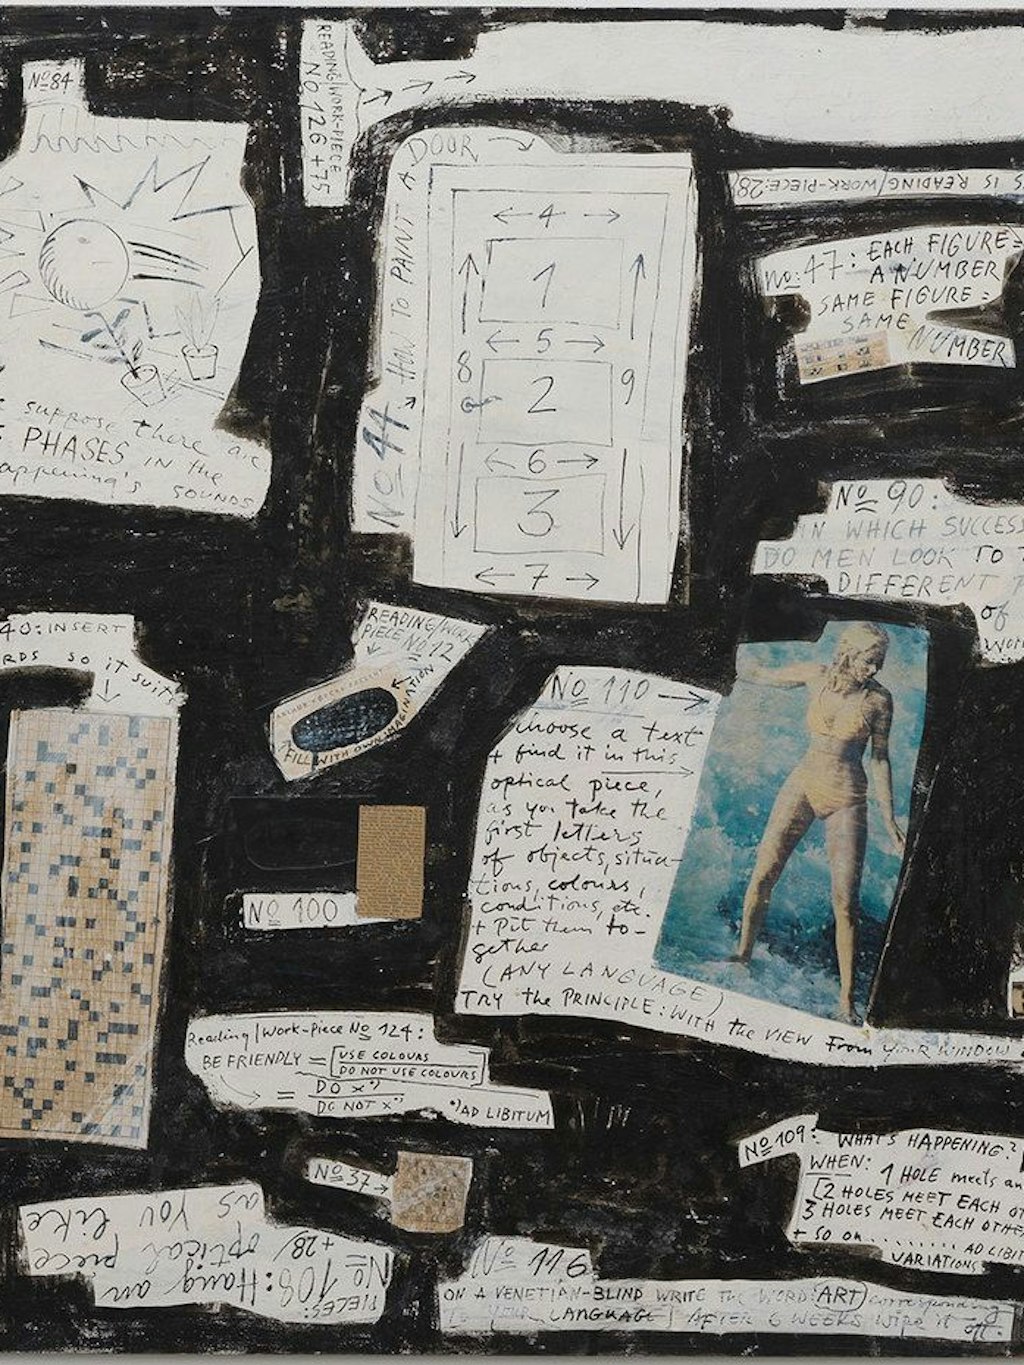 No 84
READING/WORK-PIECE
No 126 + 75
DOOR
No 44 HOW TO PAINT A
4
1
5
8
2
9
6
3
7
SUPPOSE there are
PHASES in the
happening's SOUNDS
S IS READING/WORK-PIECE:28
No: 47: EACH FIGURE =
A NUMBER
SAME FIGURE =
SAME
NUMBER
No 90:
IN WHICH SUCCESS
DO MEN LOOK TO
DIFFERENT
of
40: INSERT
RDS SO it suits
READING/WORK
PIECE No 12
FILL WITH OWN IMAGINATION
No 100
No 110
choose a text
+ find it in this
optical piece,
as you take the
first letters
of objects, situa-
tions, colours,
conditions, etc.
+ Put them to-
gether
(ANY LANGUAGE)
TRY the PRINCIPLE: WITH the VIEW From your WINDOW
Reading/Work-Piece No 124:
BE FRIENDLY = USE COLOURS
DO NOT USE COLOURS
= DO x*)
DO NOT x*)
*) AD LIBITUM
No 109: WHAT'S HAPPENING?
WHEN: 1 HOLE meets an
2 HOLES MEET EACH OT
3 HOLES MEET EACH OTHE
+ so on ........ AD LIBIT
VARIATIONS
No 37
PIECES:
No 108: Hang an
+28/ optical piece
as you like
No 116
ON A VENETIAN-BLIND WRITE the WORD: ART corresponding
to YOUR LANGUAGE AFTER 6 WEEKS wipe it off.